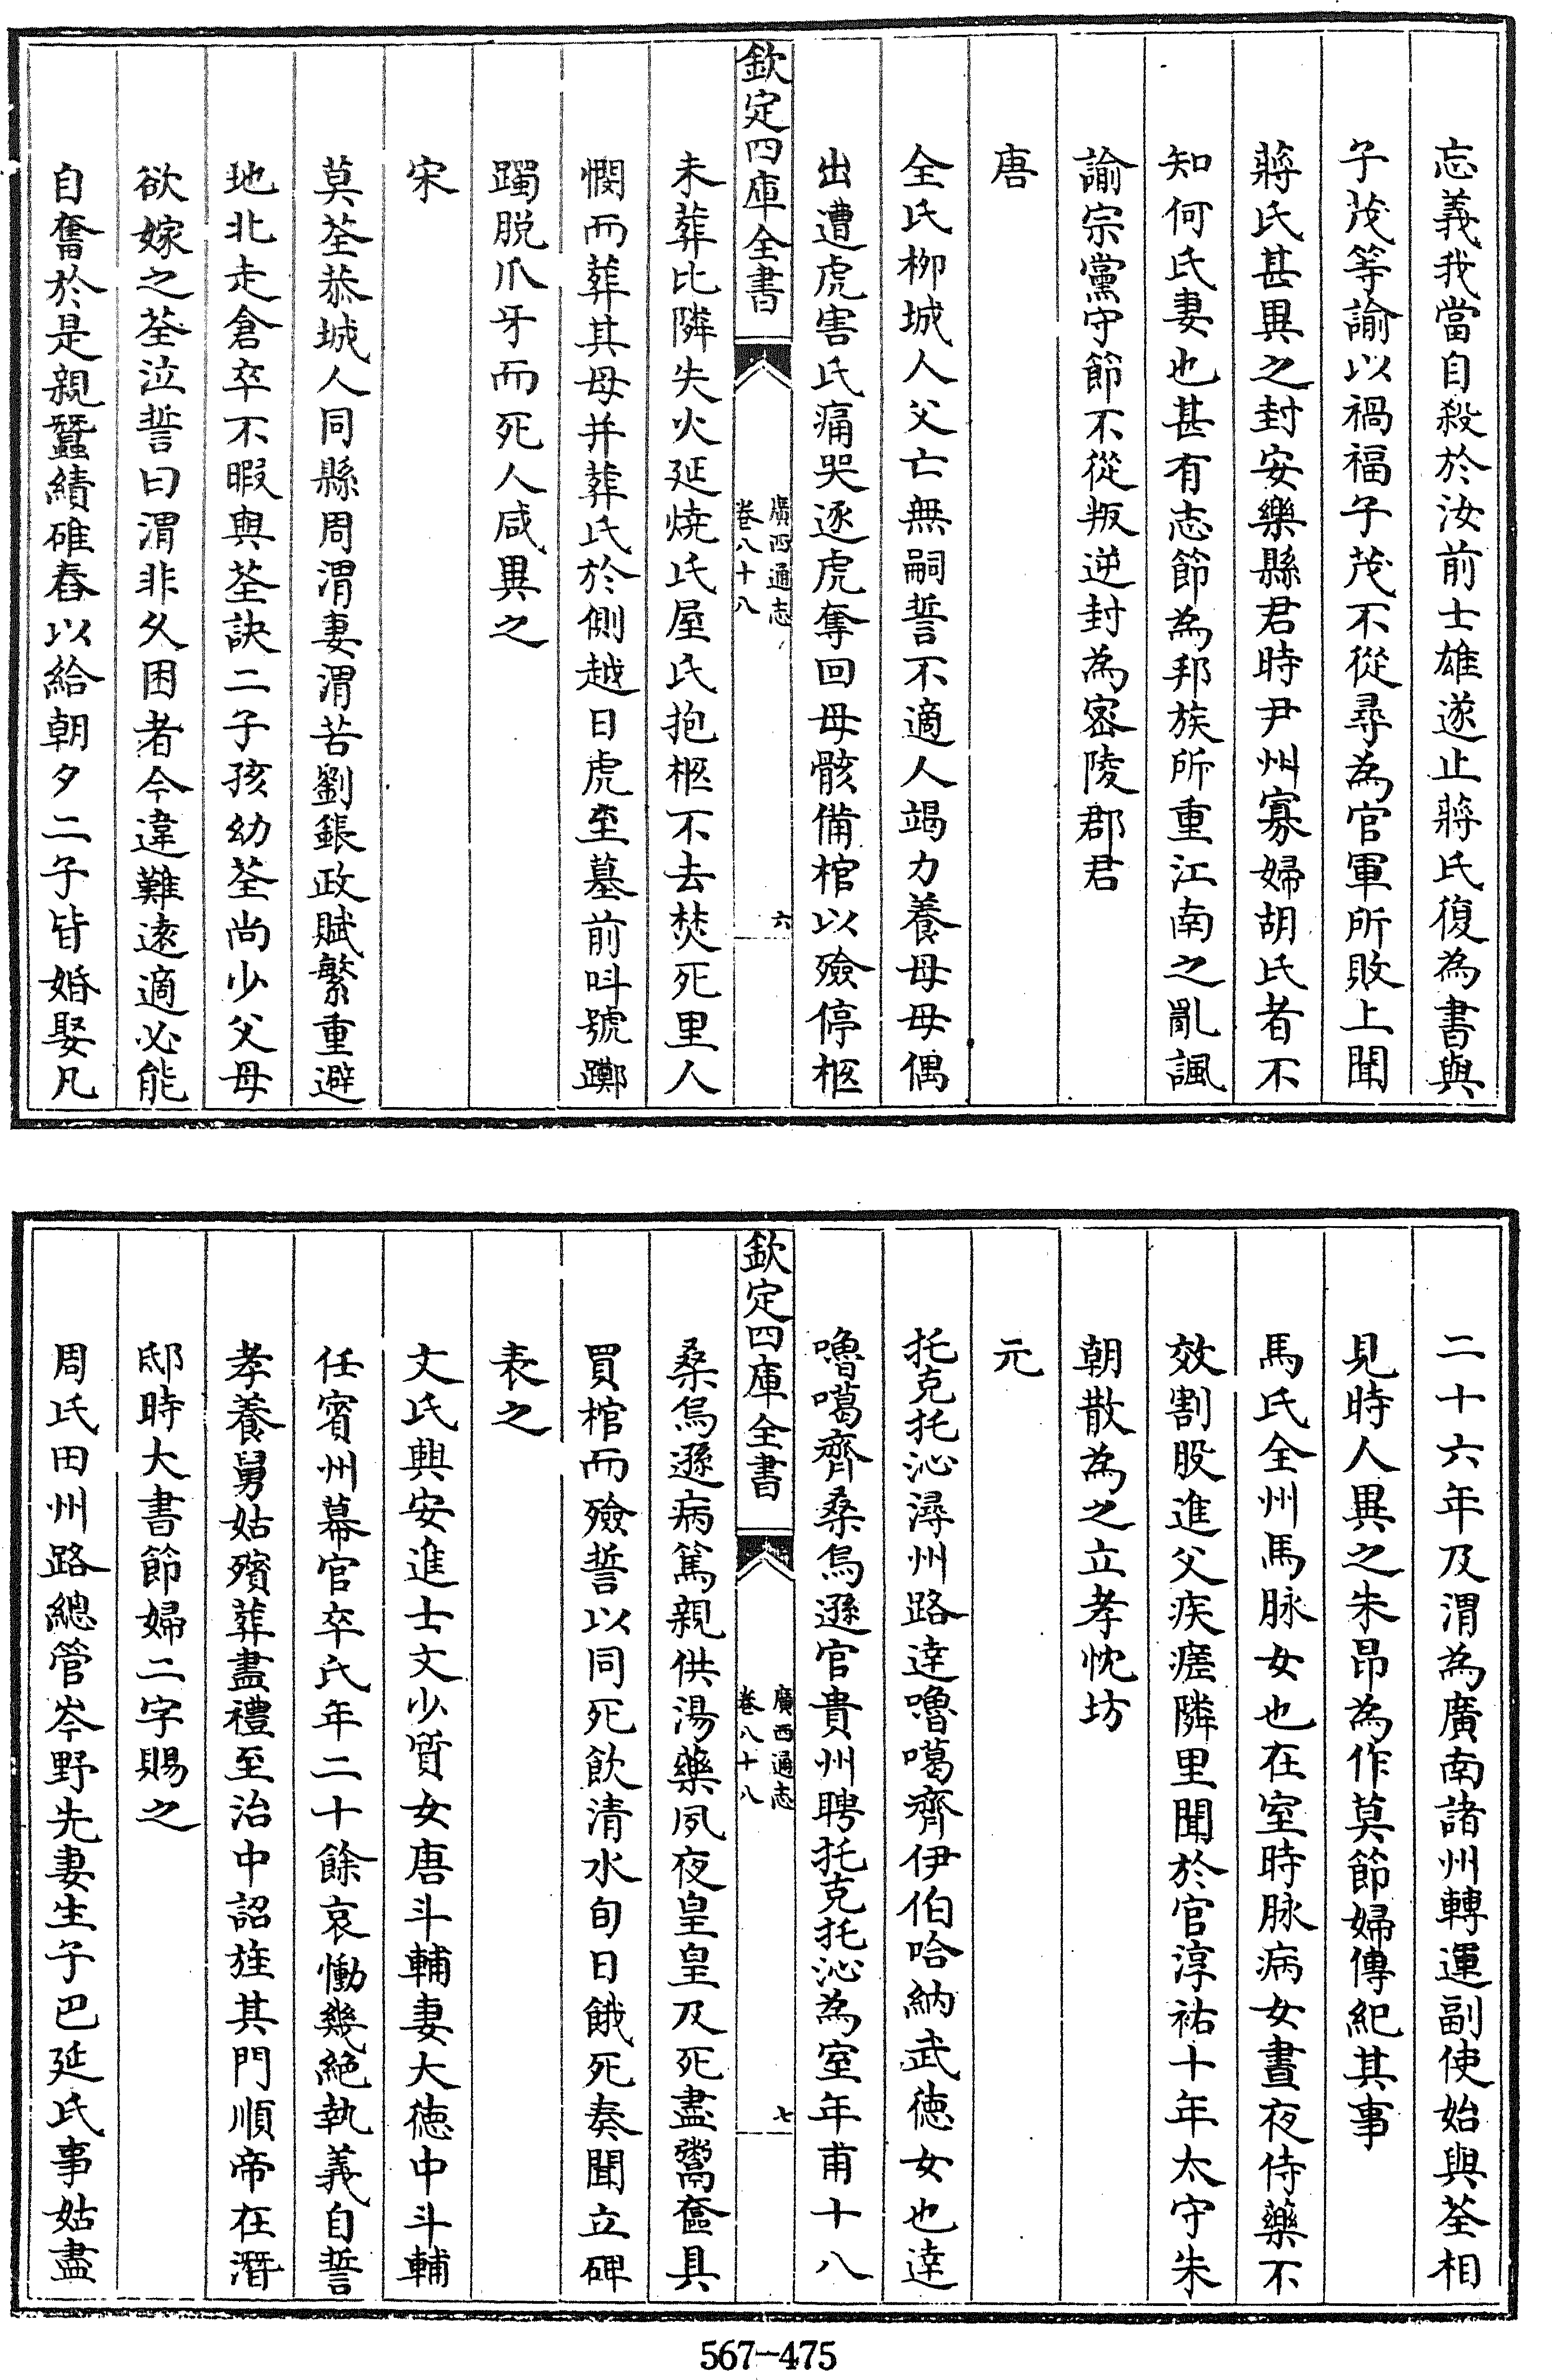 忘義我當自殺於汝前士雄遂止蔣氏復為書與
子茂等諭以禍福子茂不從尋為官軍所敗上聞
蔣氏甚異之封安樂縣君時尹州寡婦胡氏者不
知何氏妻也甚有志節為邦族所重江南之亂諷
諭宗黨守節不從叛逆封為密陵郡君
唐
全氏柳城人父亡無嗣誓不適人竭力養母母偶
出遭虎害氏痛哭逐虎奪回母骸備棺以殮停柩
欽定四庫全書
廣西通志
卷八十八
六
未葬比隣失火延燒氏屋氏抱柩不去焚死里人
憫而葬其母并葬氏於側越日虎至墓前呌號躑
躅脱爪牙而死人咸異之
宋
莫荃恭城人同縣周渭妻渭苦劉鋹政賦繁重避
地北走倉卒不暇與荃訣二子孩幼荃尚少父母
欲嫁之荃泣誓曰渭非久困者今違難遠適必能
自奮於是親蠶績碓舂以給朝夕二子皆婚娶凡
二十六年及渭為廣南諸州轉運副使始與荃相
見時人異之朱昂為作莫節婦傳紀其事
馬氏全州馬脉女也在室時脉病女晝夜侍藥不
效割股進父疾瘥隣里聞於官淳祐十年太守朱
朝散為之立孝忱坊
元
托克托沁潯州路達嚕噶齊伊伯哈納武德女也達
嚕噶齊桑烏遜官貴州聘托克托沁為室年甫十八
欽定四庫全書
廣西通志
卷八十八
七
桑烏遜病篤親供湯藥夙夜皇皇及死盡鬻奩具
買棺而殮誓以同死飲清水旬日餓死奏聞立碑
表之
文氏興安進士文少質女唐斗輔妻大德中斗輔
任賓州幕官卒氏年二十餘哀慟幾絶執義自誓
孝養舅姑殯葬盡禮至治中詔旌其門順帝在潛
邸時大書節婦二字賜之
周氏田州路總管岑野先妻生子巴延氏事姑盡
567-475